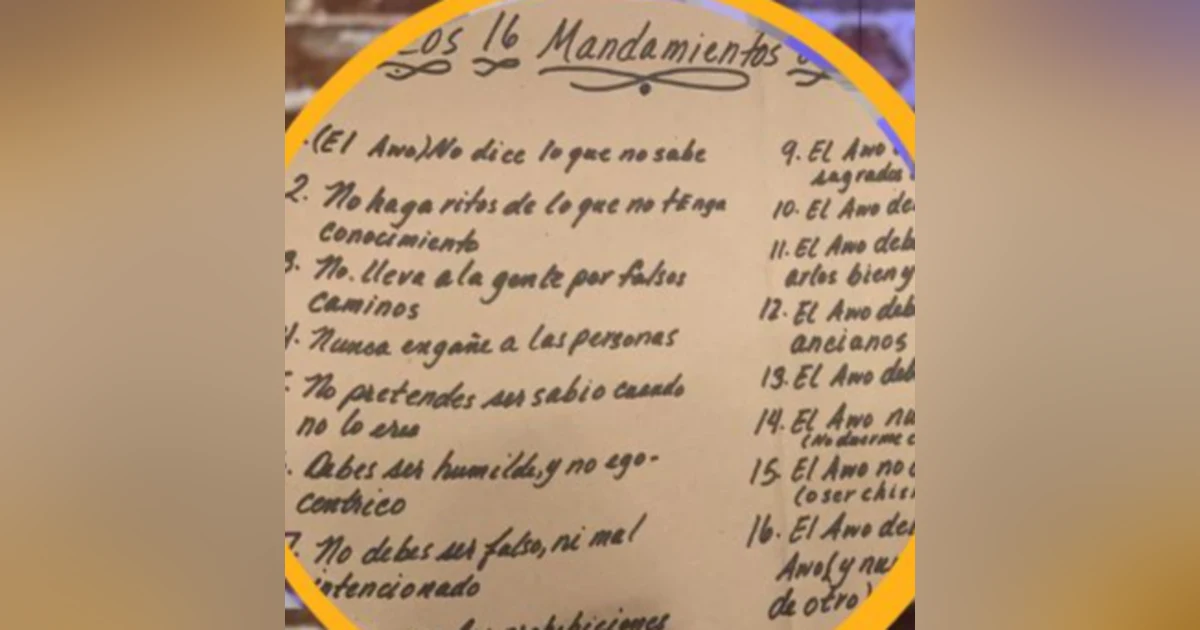 Los 16 Mandamientos
(El Awo) No dice lo que no sabe
2. No haga ritos de lo que no tEnga
conocimiento
3. No. lleva a la gente por falsos
caminos
4. Nunca engañe a las personas
No pretendes ser sabio cuando
no lo eres
Debes ser humilde, y no ego-
centrico
7. No debes ser falso, ni mal
intencionado
prohibiciones
9. El Awo
sagrados
10. El Awo de
11. El Awo deb
arlos bien y
12. El Awo deb
ancianos
13. El Awo deb
14. El Awo nu
(No duerme c
15. El Awo no
(o ser chis
16. El Awo de
Awos (y nu
de otro)